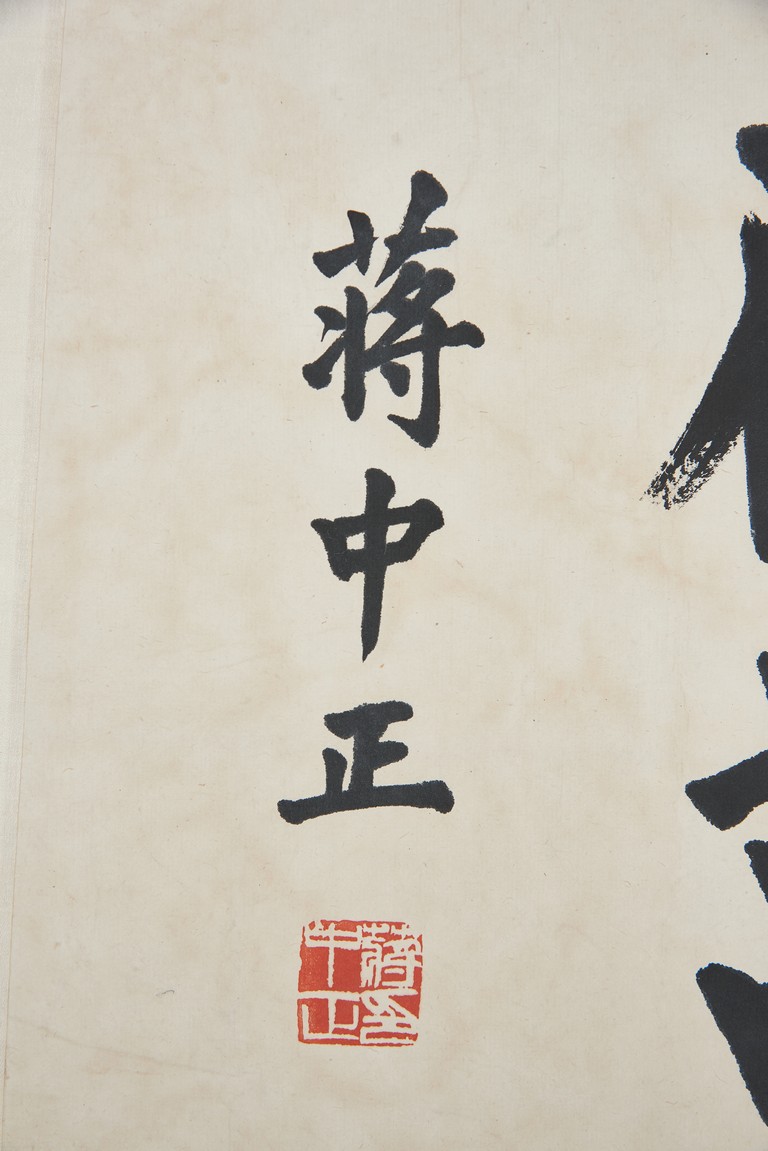 蔣中正
蔣印
中正